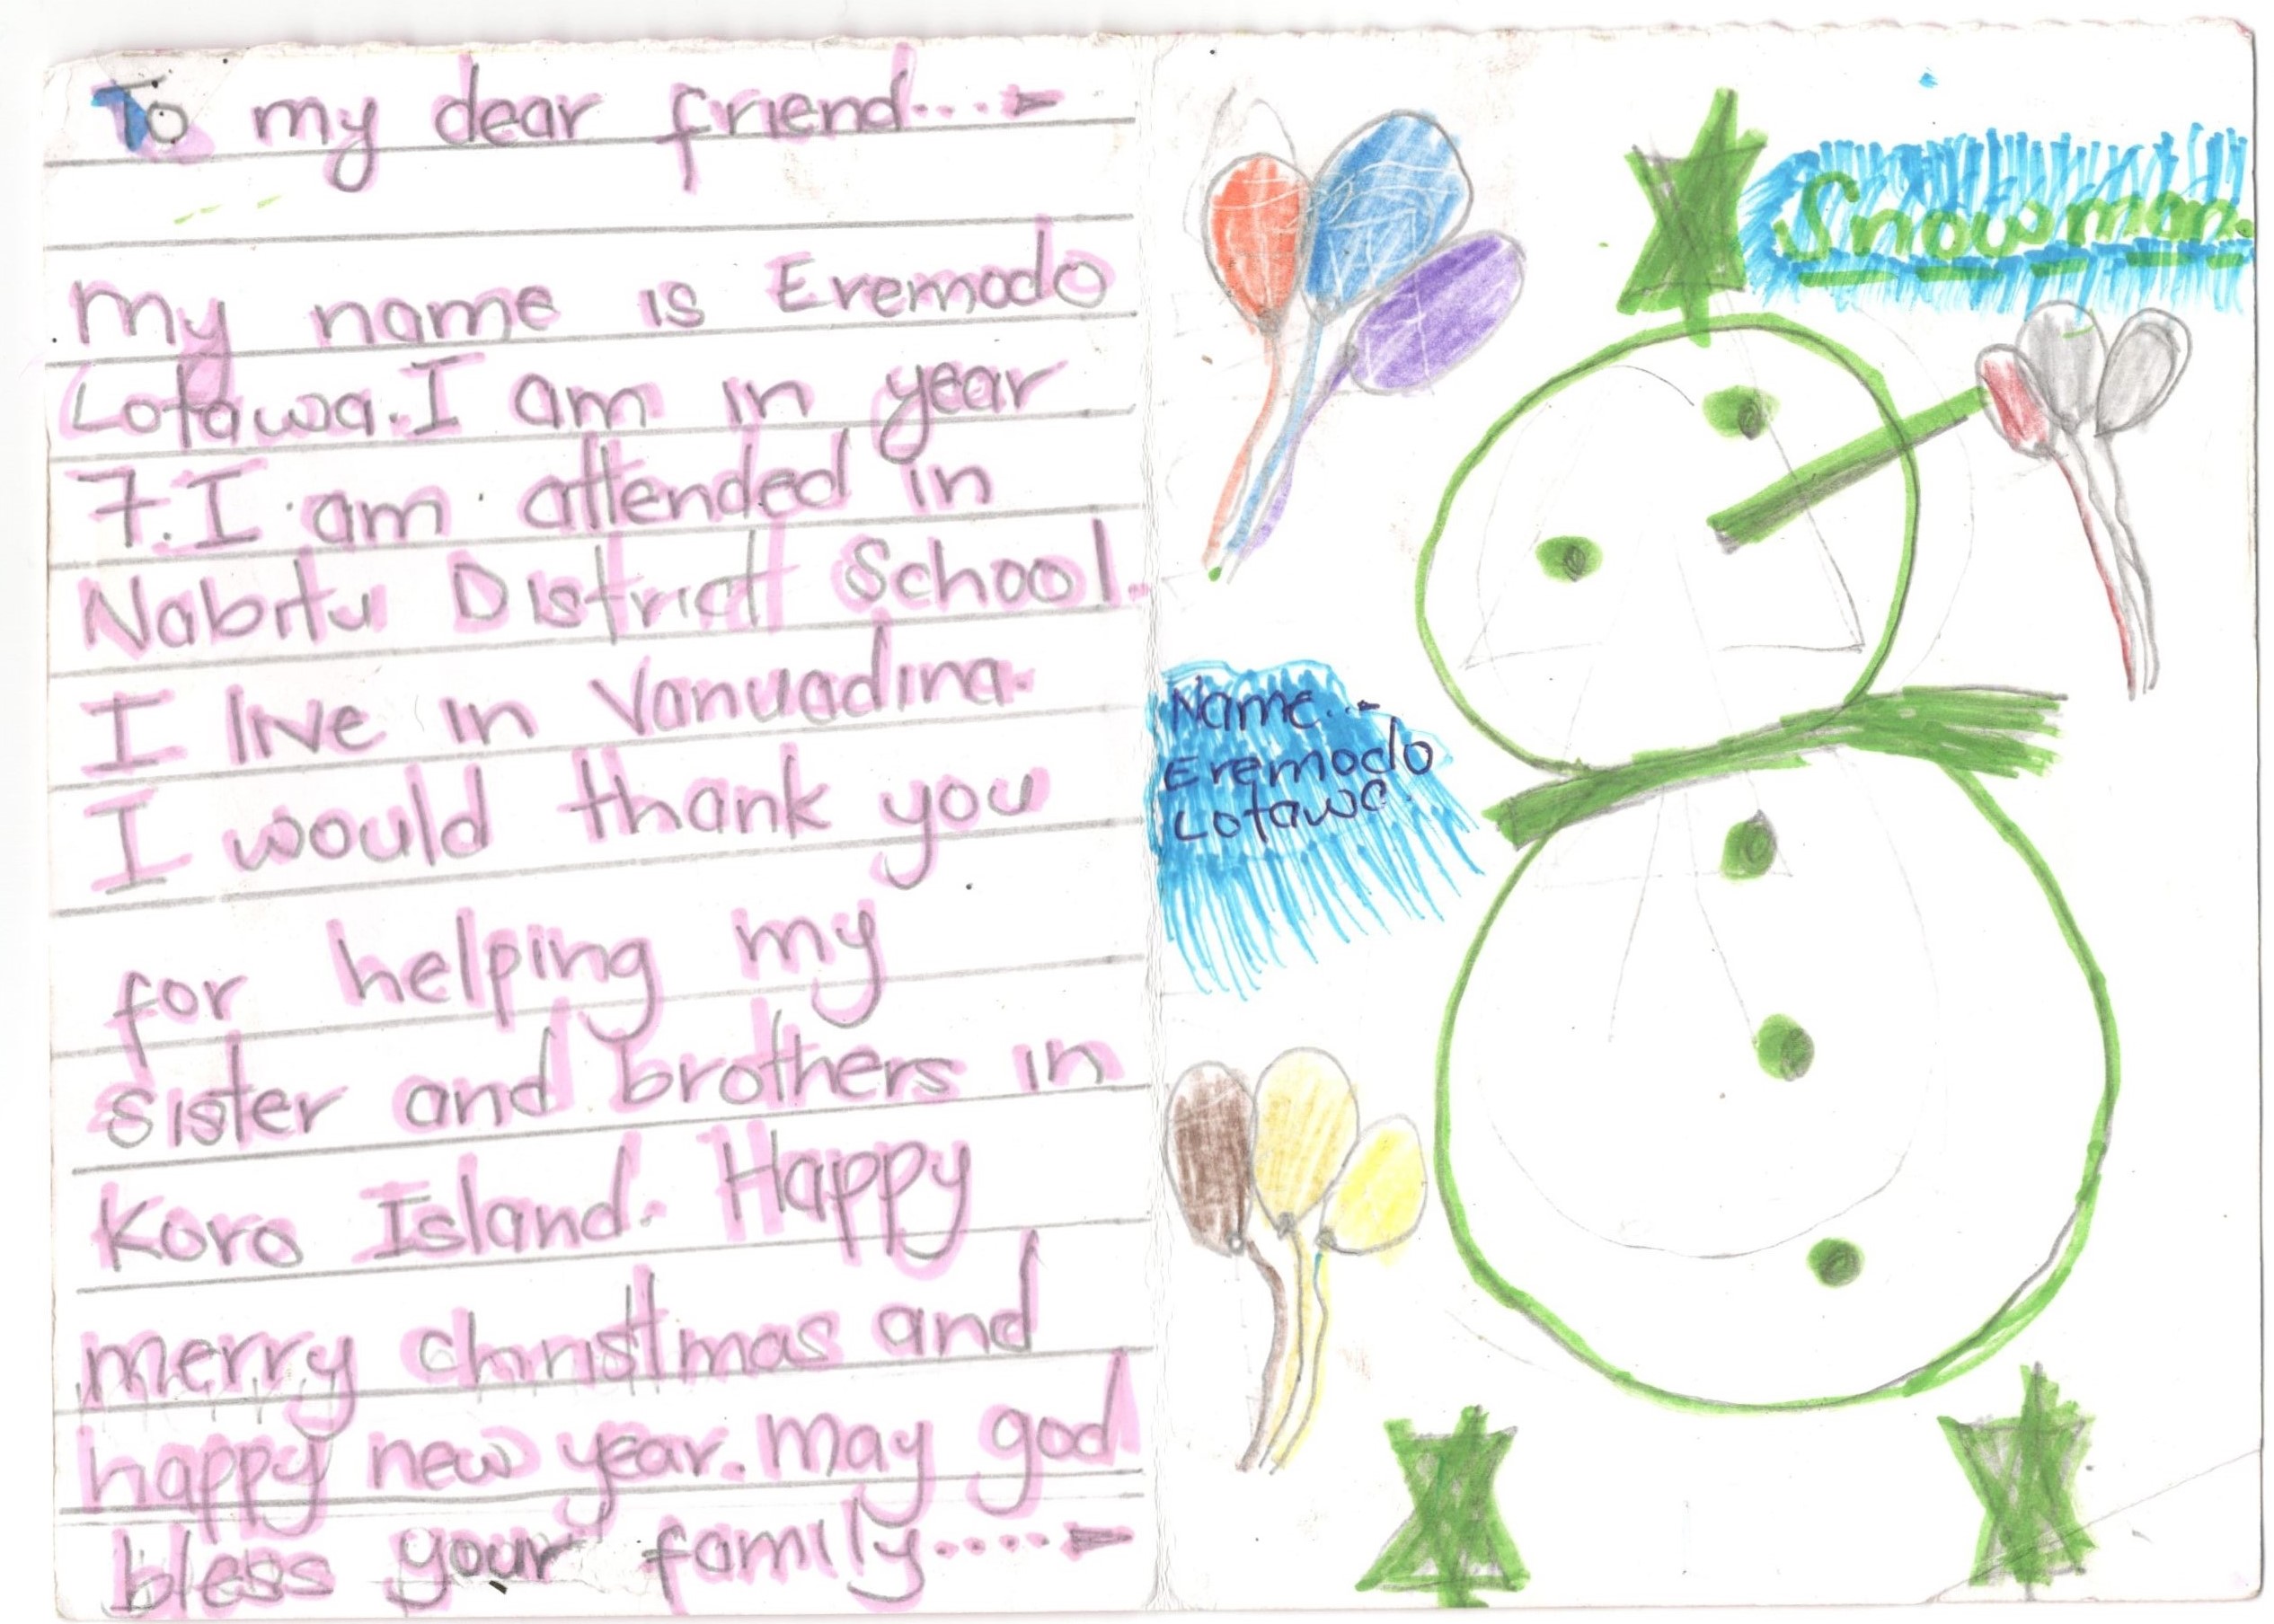 To my dear friend....
My name is Eremodo
Lotawa. I am in year
7. I am attended in
Nabitu District School.
I live in Vanuadina.
I would thank you
for helping my
sister and brothers in
Koro Island. Happy
merry christmas and
happy new year. may god
bless your family....
Snowman.
Name..-
Eremodo
Lotawa.